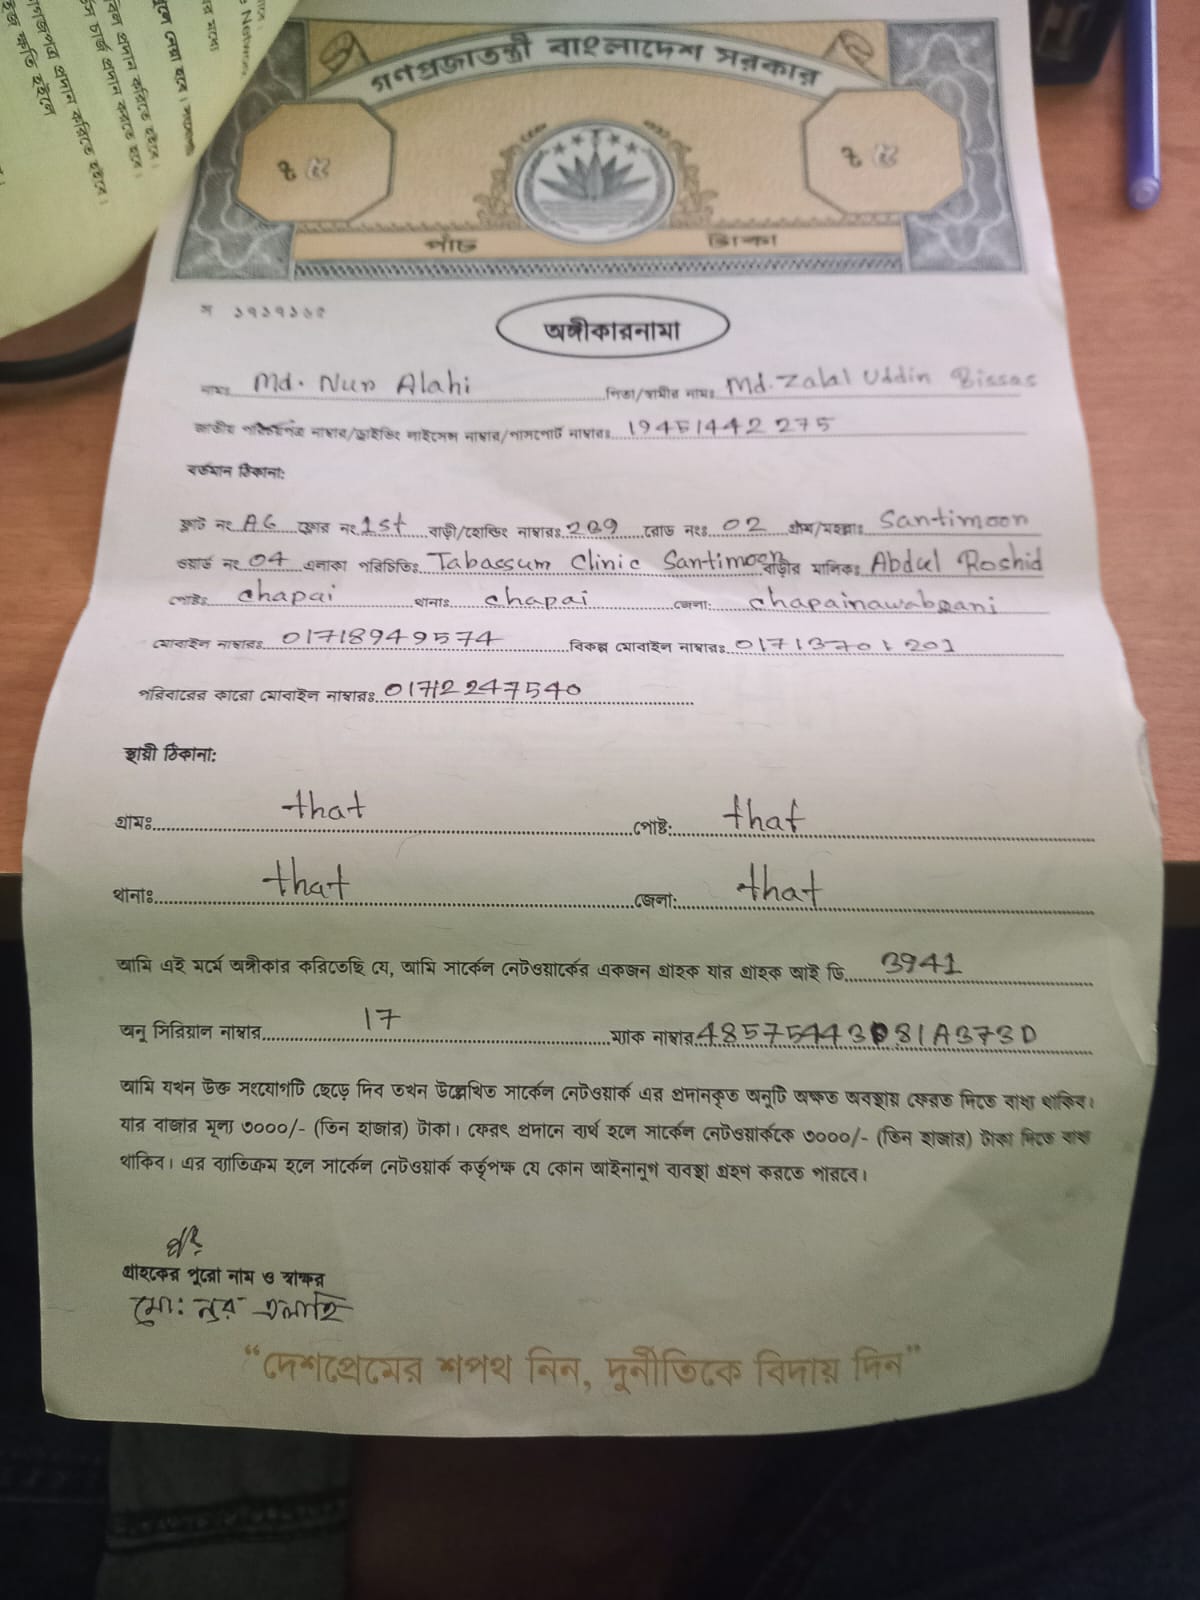 গণপ্রজাতন্ত্রী বাংলাদেশ সরকার
৳ ৫ ৳ ৫
পাঁচ টাকা
অঙ্গীকারনামা
নামঃ Md. Nur Alahi পিতা/স্বামীর নামঃ Md. Zalal Uddin Bissas
জাতীয় পরিচয়পত্র নাম্বার/ড্রাইভিং লাইসেন্স নাম্বার/পাসপোর্ট নাম্বারঃ 19451442275
বর্তমান ঠিকানা:
ফ্লাট নং A6 ফ্লোর নং 1st বাড়ী/হোল্ডিং নাম্বারঃ 209 রোড নংঃ 02 গ্রাম/মহল্লাঃ Santimoon
ওয়ার্ড নং 04 এলাকা পরিচিতিঃ Tabassum Clinic Santimoon বাড়ীর মালিকঃ Abdul Roshid
পোষ্টঃ chapai থানাঃ chapai জেলা: chapainawabgani
মোবাইল নাম্বারঃ 01718949574 বিকল্প মোবাইল নাম্বারঃ 01713701201
পরিবারের কারো মোবাইল নাম্বারঃ 01712247540
স্থায়ী ঠিকানা:
গ্রামঃ that পোষ্ট: that
থানাঃ that জেলা: that
আমি এই মর্মে অঙ্গীকার করিতেছি যে, আমি সার্কেল নেটওয়ার্কের একজন গ্রাহক যার গ্রাহক আই ডি 3941
অনু সিরিয়াল নাম্বার 17 ম্যাক নাম্বার 48575443D81A373D
আমি যখন উক্ত সংযোগটি ছেড়ে দিব তখন উল্লেখিত সার্কেল নেটওয়ার্ক এর প্রদানকৃত অনুটি অক্ষত অবস্থায় ফেরত দিতে বাধ্য থাকিব।
যার বাজার মূল্য ৩০০০/- (তিন হাজার) টাকা। ফেরৎ প্রদানে ব্যর্থ হলে সার্কেল নেটওয়ার্ককে ৩০০০/- (তিন হাজার) টাকা দিতে বাধ্য
থাকিব। এর ব্যতিক্রম হলে সার্কেল নেটওয়ার্ক কর্তৃপক্ষ যে কোন আইনানুগ ব্যবস্থা গ্রহণ করতে পারবে।
গ্রাহকের পুরো নাম ও স্বাক্ষর
মো: নুর এলাহি
“দেশপ্রেমের শপথ নিন, দুর্নীতিকে বিদায় দিন”